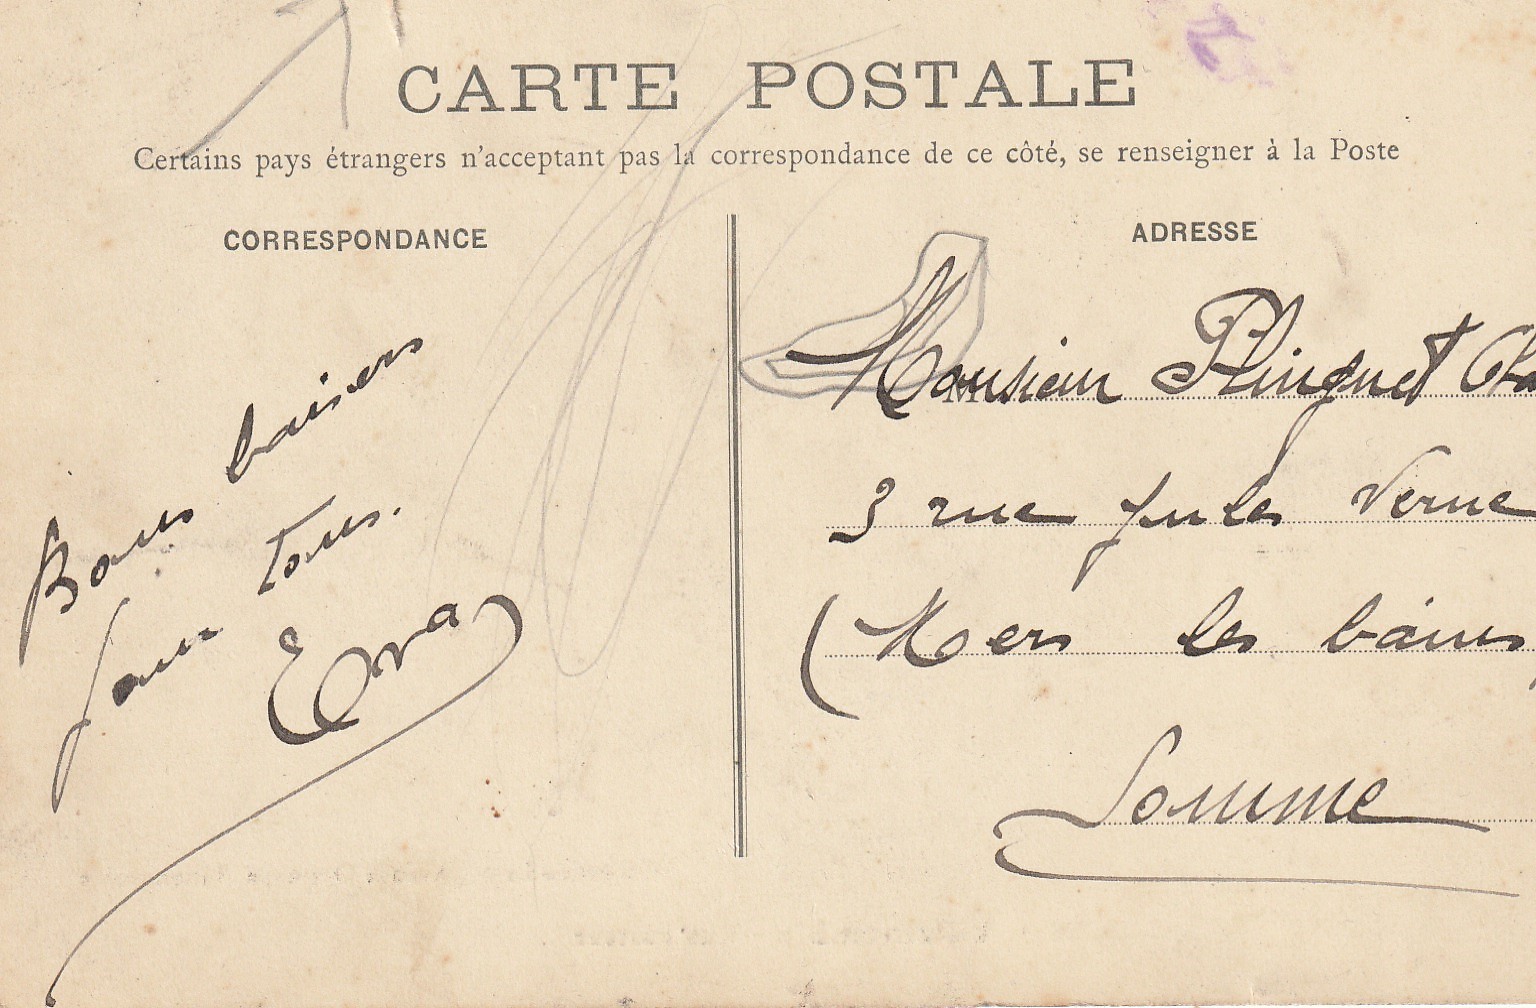 CARTE POSTALE
Certains pays étrangers n'acceptant pas la correspondance de ce côté, se renseigner à la Poste
CORRESPONDANCE
Bons baisers
pour tous.
Eva
ADRESSE
Monsieur Plinguet
3 rue Jules Verne
(Mers les bains
Somme